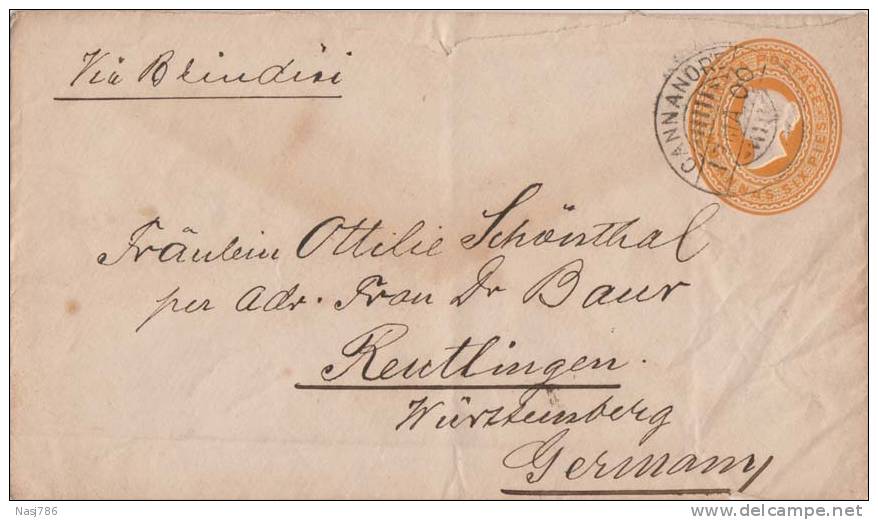 Via Brindisi
CANNANORE
MA 00
POSTAGE
ANNAS SIX PIES
Fräulein Ottilie Schönthal
per Adr. Frau Dr Baur
Reutlingen.
Württemberg
Germany
Nasj786
delcampe.net